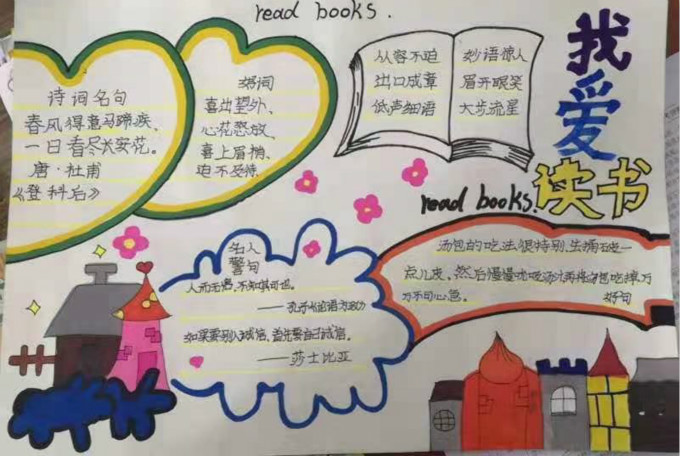 read books.
我爱读书
诗词名句
春风得意马蹄疾、
一日看尽长安花。
唐·杜甫
《登科后》
词词
喜出望外、
心花怒放、
喜上眉梢、
迫不及待、
从容不迫
出口成章
低声细语
妙语惊人
眉开眼笑
大步流星
read books.
名人
警句
人而无信,不知其可也。
——孔子《论语·为政》
如果要别人诚信,首先要自己诚信。
——莎士比亚
汤包的吃法很特别,先捅破一
点儿皮,然后慢慢地吃汤汁再将包吃掉万
万不可心急。
好句